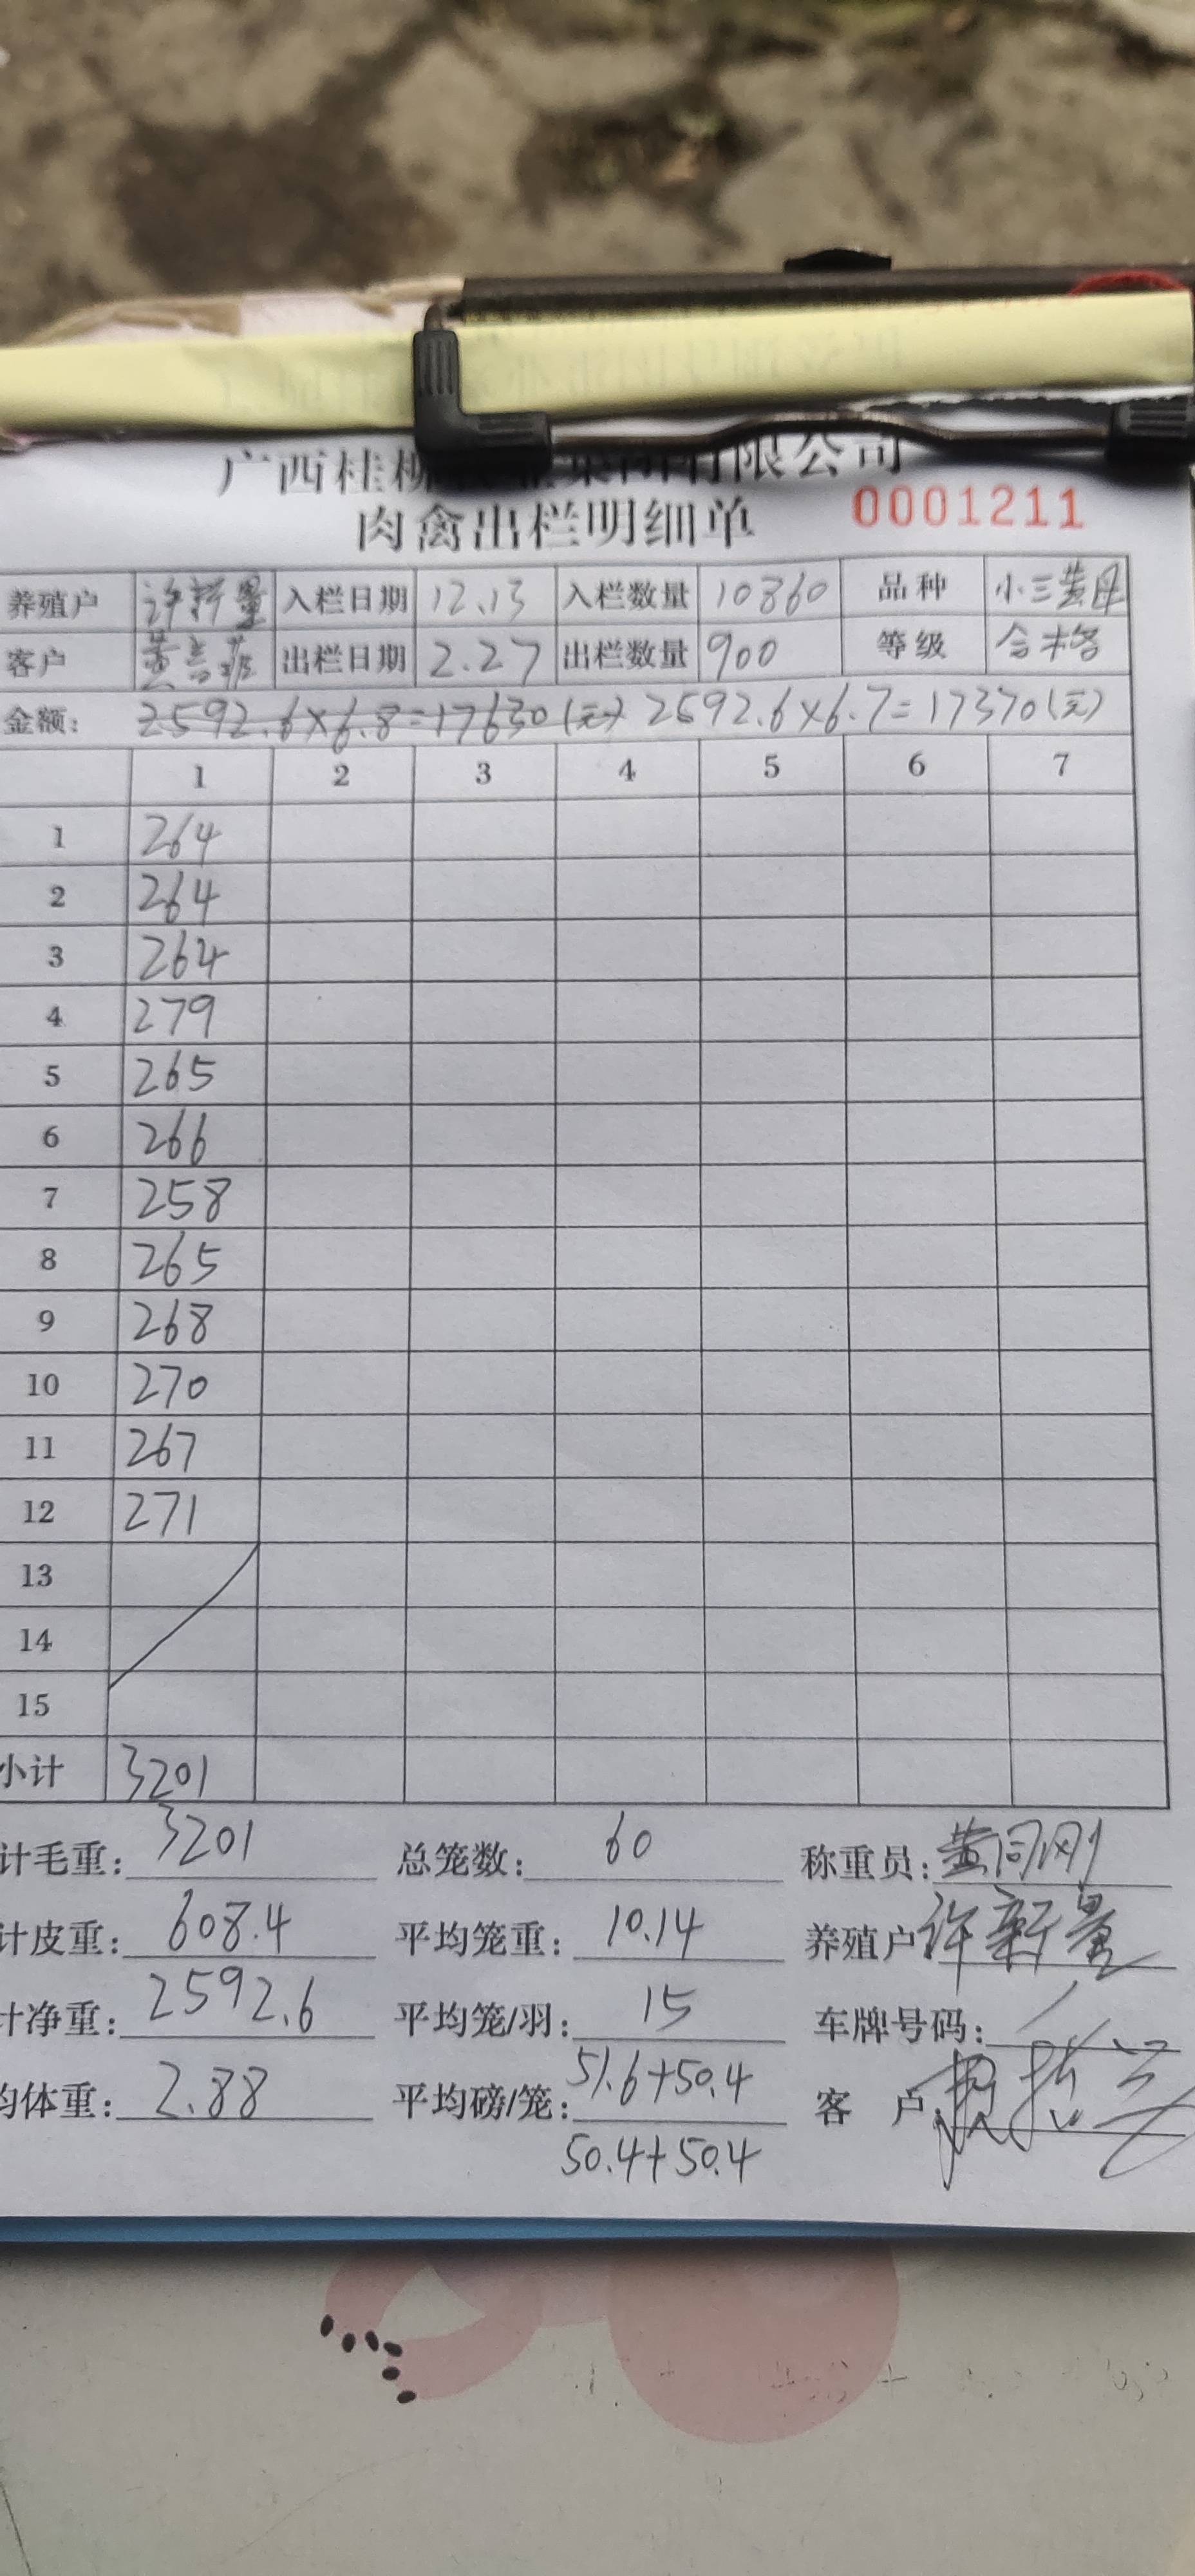 广西桂柳 集团有限公司
肉禽出栏明细单 0001211
养殖户 许新量 入栏日期 12.13 入栏数量 10860 品种 小三黄母
客户 出栏日期 2.27 出栏数量 900 等级 合格
金额: 2592.6×6.8=17630(元) 2592.6×6.7=17370(元)
1 2 3 4 5 6 7
1 264
2 264
3 264
4 279
5 265
6 266
7 258
8 265
9 268
10 270
11 267
12 271
13
14
15
小计 3201
计毛重: 3201 总笼数: 60 称重员: 黄同刚
计皮重: 608.4 平均笼重: 10.14 养殖户 许新量
计净重: 2592.6 平均笼/羽: 15 车牌号码: /
均体重: 2.88 平均磅/笼: 51.6+50.4 客 户
50.4+50.4